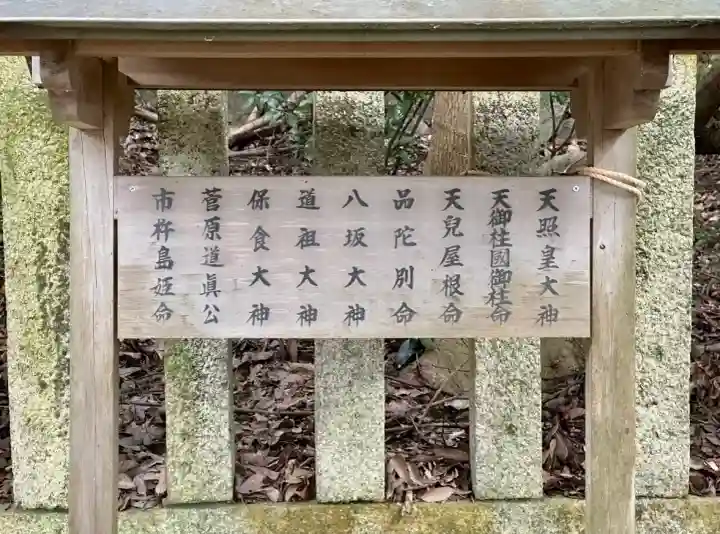 天照皇大神
天御柱國御柱命
天兒屋根命
品陀別命
八坂大神
道祖大神
保食大神
菅原道眞公
市杵島姫命